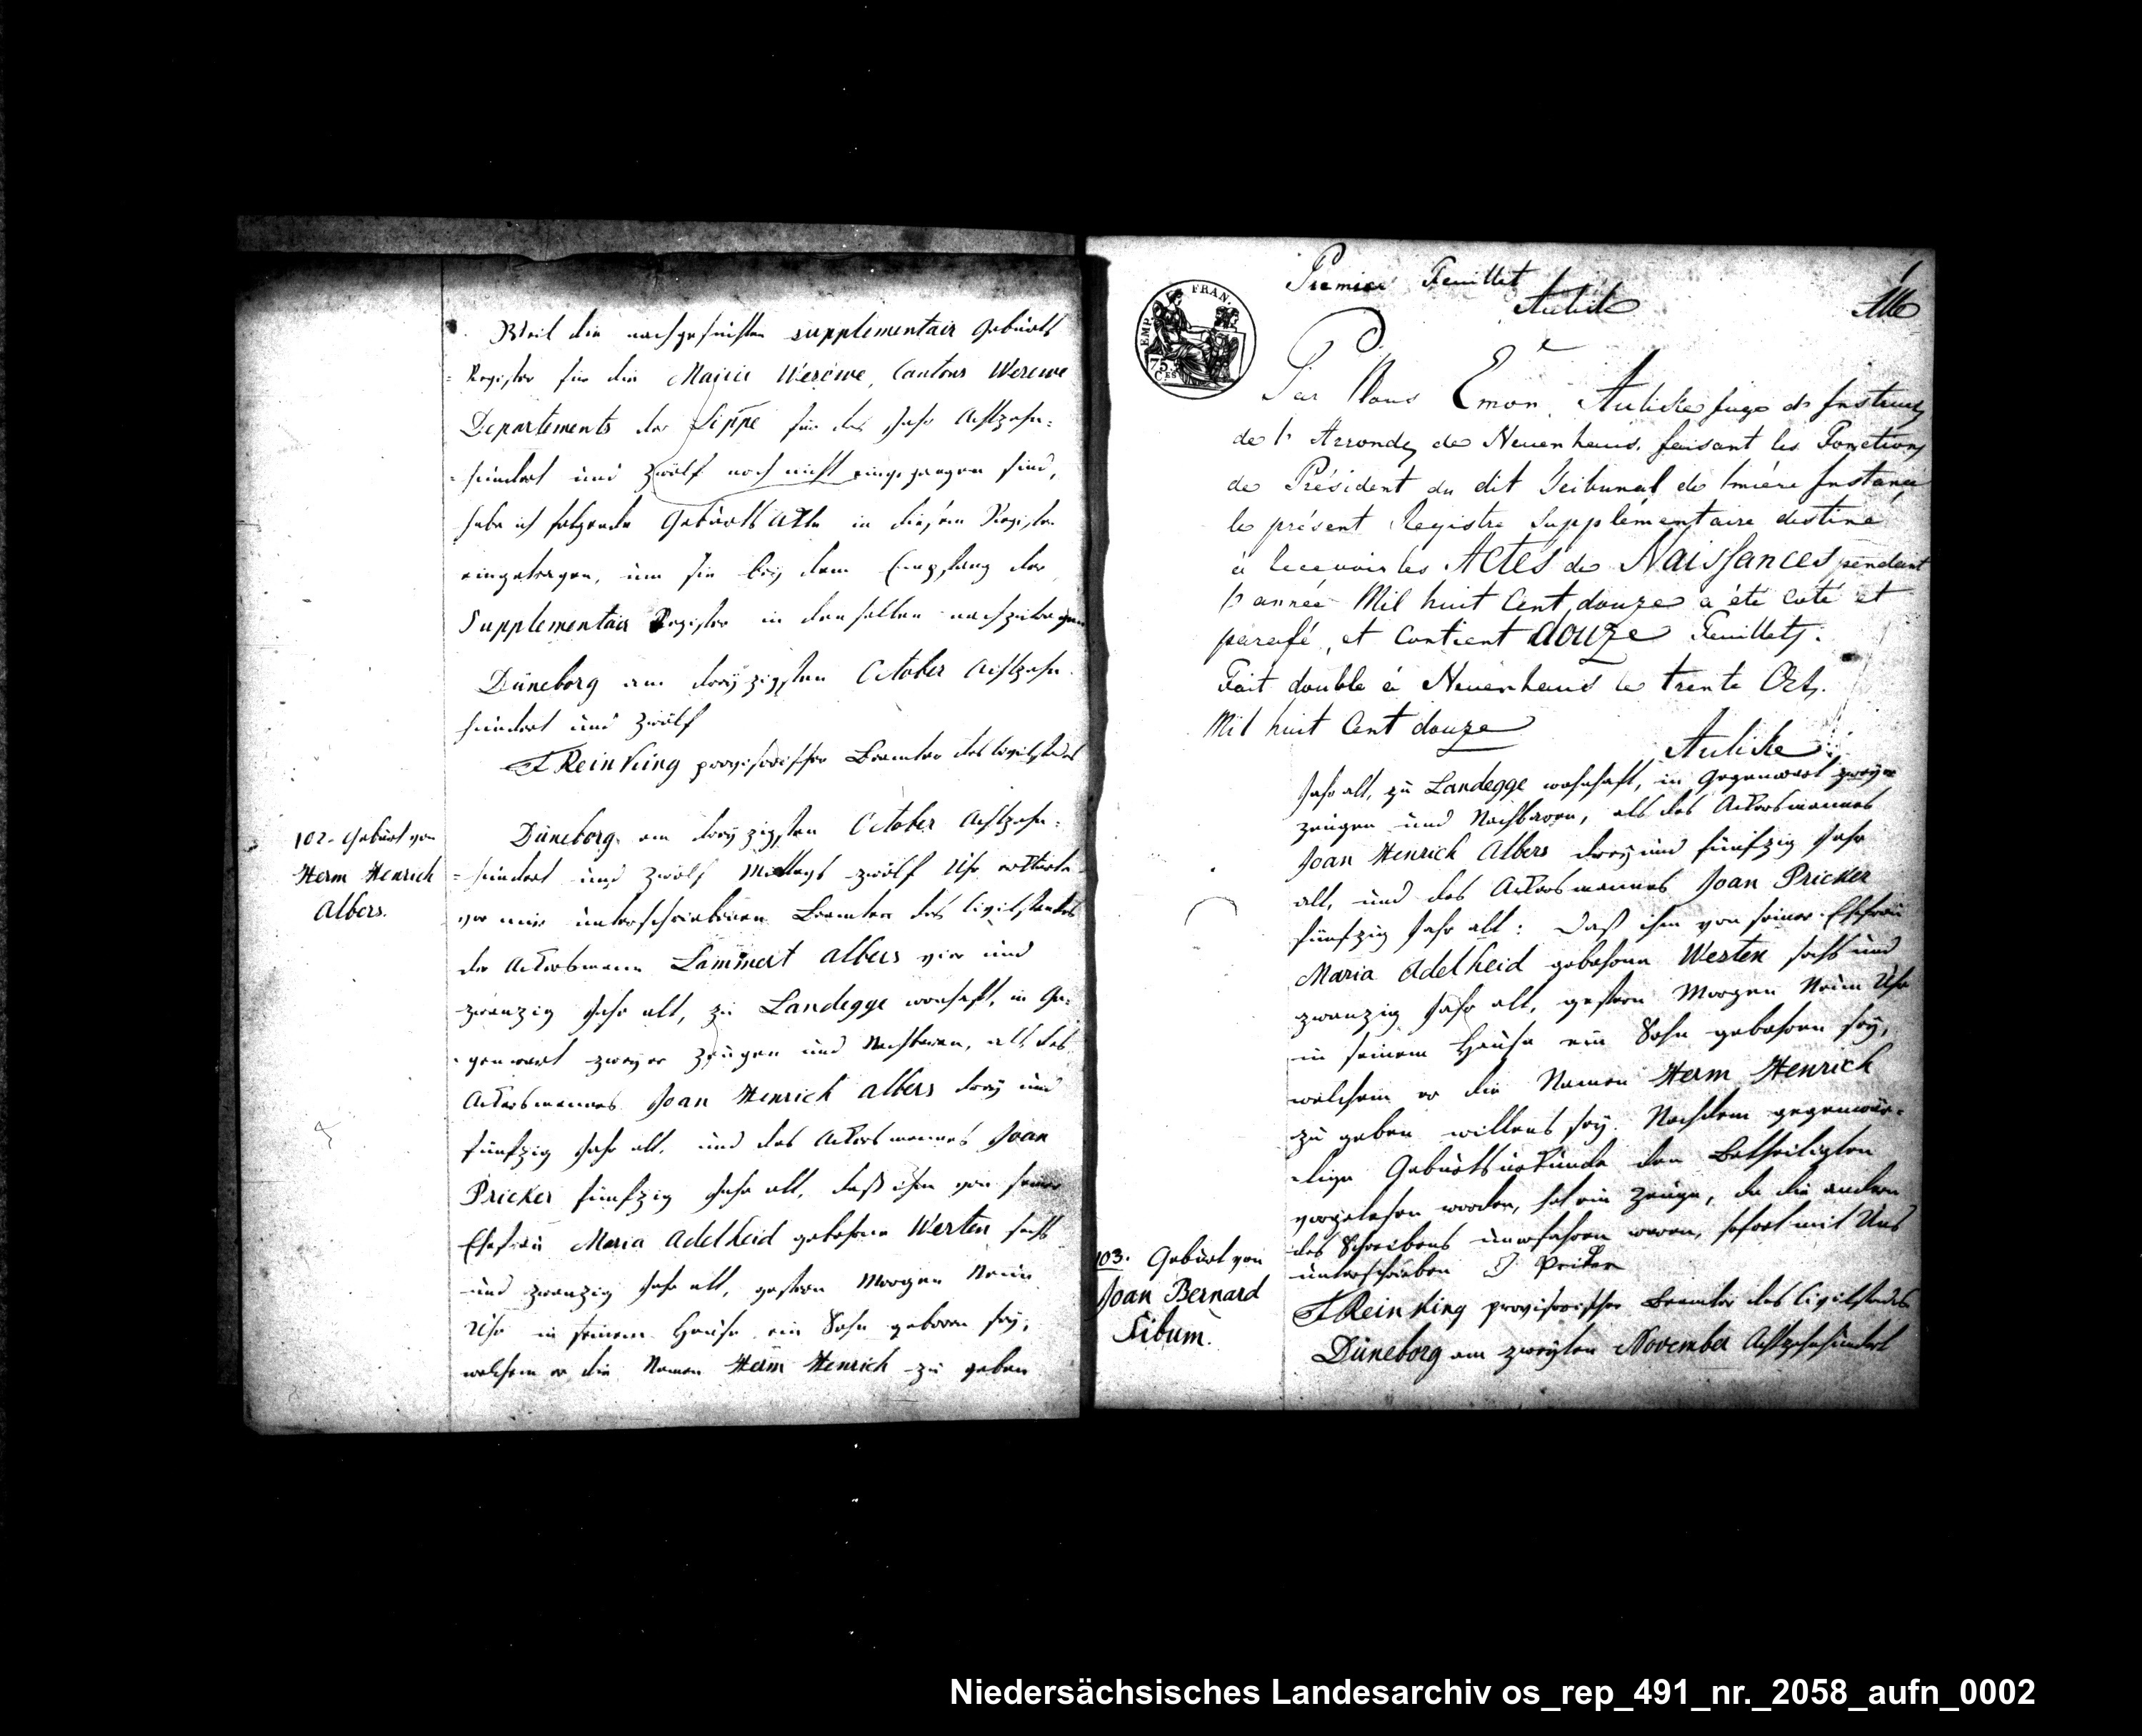 Weil die nachgesuchten supplementair Geburts
Register für die Mairie Wesuwe, Cantons Wesuwe
Departements der Lippe für das Jahr Achtzehn-
hundert und zwölf noch nicht eingegangen sind,
habe ich folgende Geburts Akte in diesem Register
eingetragen, um sie bey dem Empfang der
Supplementair Register in denselben nachzutragen
Düneborg am dreyzigsten October Achtzehn-
hundert und zwölf
Reinking provisorischer Beamter des Civilstandes
102. Geburt von
Herm Henrich
Albers.
Düneborg am dreyzigsten October Achtzehn-
hundert und zwölf Mittags zwölf Uhr erklärte
vor mir unterschriebenen Beamten des Civilstandes
der Ackersmann Lammert Albers vier und
zwanzig Jahr alt, zu Landegge wonhaft, in Ge-
genwart zweyer Zeugen und Nachbaren, als des
Ackersmannes Joan Henrich Albers drey und
fünfzig Jahr alt, und des Ackersmannes Joan
Pricker fünfzig Jahr alt, daß ihm von seiner
Ehefrau Maria Adelheid gebohrne Werten sechs
und zwanzig Jahr alt, gestern Morgen Neun
Uhr in seinem Hause ein Sohn geboren sey,
welchem er die Namen Herm Henrich zu geben
Premier Feuillet
Aulike
EMP. FRAN.
75
CES
Par Nous Emon. Aulike Juge d'Instruct
de l'Arrond de Neuenhaus, faisant les Fonctions
de Président du dit Tribunal de 1mière Instance
le présent Registre Supplémentaire destiné
à recevoir les Actes de Naissances pendant
l'année Mil huit Cent douze a été coté et
parafé, et contient douze Feuillets.
Fait double à Neuenhaus le trente Oct.
Mil huit Cent douze
Aulike
Jahr alt, zu Landegge wohnhaft, in Gegenwart zweyer
Zeugen und Nachbaren, als des Ackersmannes
Joan Henrich Albers drey und fünfzig Jahr
alt, und des Ackersmannes Joan Pricker
fünfzig Jahr alt: Daß ihm von seiner Ehefrau
Maria Adelheid gebohrne Werten sechs und
zwanzig Jahr alt, gestern Morgen Neun Uhr
in seinem Hause ein Sohn gebohren sey,
welchem er die Namen Herm Henrich
zu geben willens sey. Nachdem gegenwär-
tige Geburtsurkunde den Betheiligten
vorgelesen worden, hat ein Zeuge, da die andern
des Schreibens unerfahren waren, sofort mit Uns
unterschrieben J Priker
Reinking provisorischer Beamter des Civilstandes
103. Geburt von
Joan Bernard
Libum.
Düneborg am zweyten November Achtzehnhundert
Niedersächsisches Landesarchiv os_rep_491_nr._2058_aufn_0002